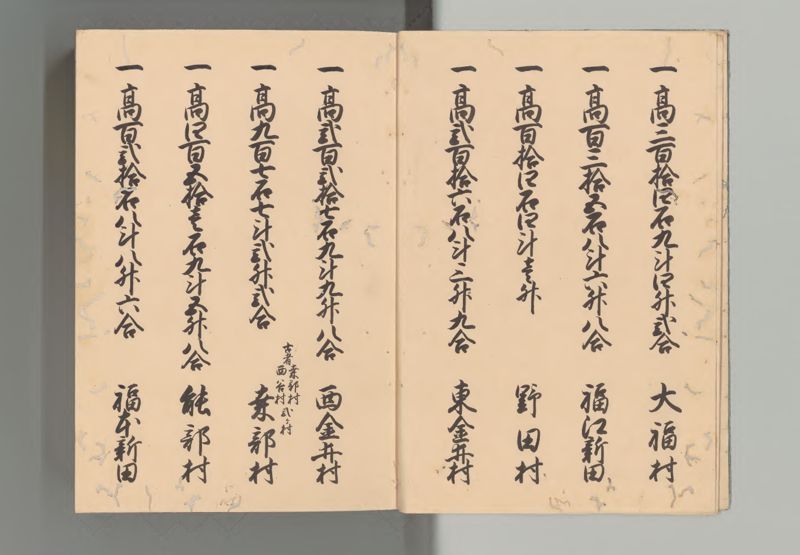 一高三百拾四石九斗四升弐合 大福村
一高百三拾五石八斗六升八合 福江新田
一高百拾四石四斗壱升 野田村
一高弐百拾六石八斗三升九合 東金井村
一高弐百弐拾七石九斗九升八合 西金井村
古者桑部村
西谷村弐ケ村
一高九百七石七斗弐升弐合 桑部村
一高四百五拾壱石九斗五升八合 能部村
一高百弐拾石八斗八升六合 福本新田